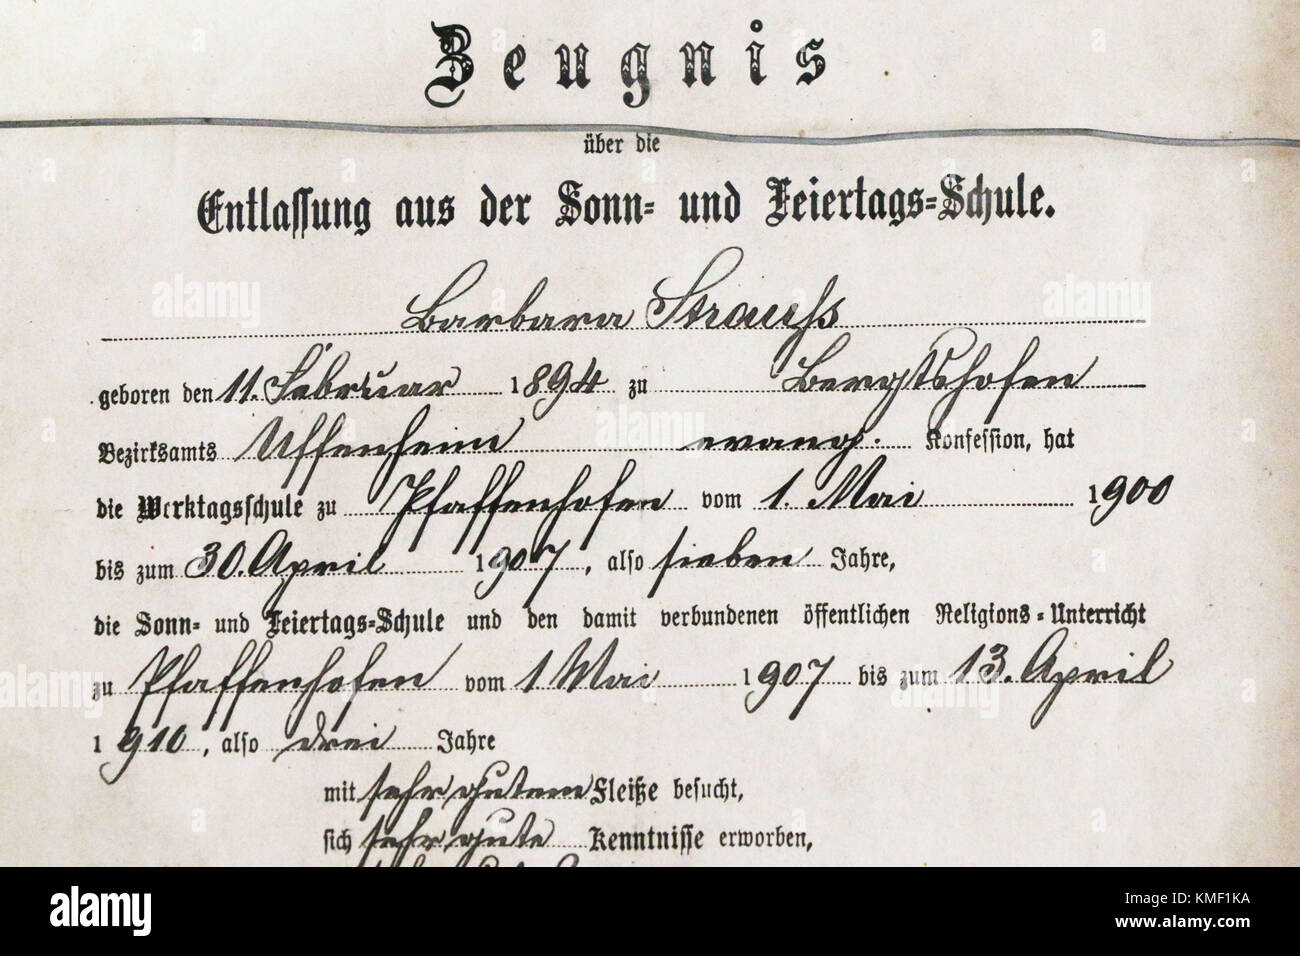 Zeugnis
über die
Entlassung aus der Sonn- und Feiertags-Schule.
Barbara Strauß
geboren den 11. Februar 1894 zu Bergtshofen
Bezirksamts Uffenheim evang. Konfession, hat
die Werktagsschule zu Pfaffenhofen vom 1. Mai 1900
bis zum 30. April 1907, also sieben Jahre,
die Sonn- und Feiertags-Schule und den damit verbundenen öffentlichen Religions-Unterricht
zu Pfaffenhofen vom 1 Mai 1907 bis zum 13. April
1910, also drei Jahre
mit sehr gutem Fleiße besucht,
sich sehr gute Kenntnisse erworben,
alamy
Image ID: KMF1KA
www.alamy.com